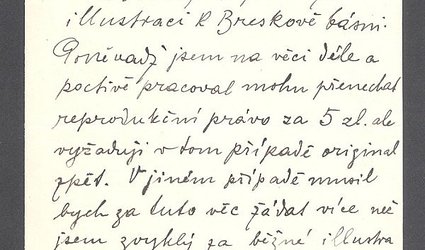 illustraci k Breskově básni.
Poněvadž jsem na věci déle a
poctivě pracoval mohu přenechat
reprodukční právo za 5 zl. ale
vyžaduji v tom případě originál
zpět. V jiném případě musil
bych za tuto věc žádat více než
jsem zvyklý za běžné illustra